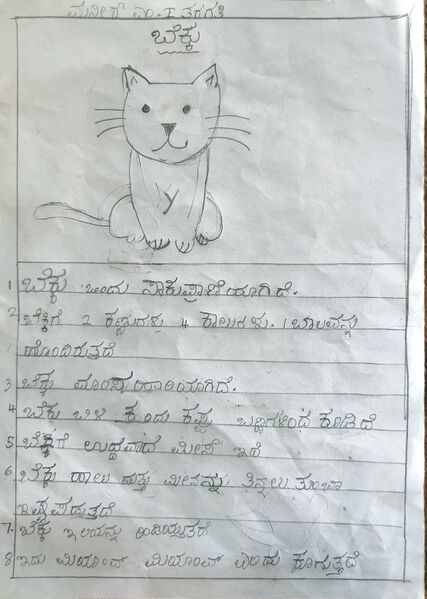 ಮನೀಶ್ ಎಂ. I ತರಗತಿ
ಬೆಕ್ಕು
1 ಬೆಕ್ಕು ಒಂದು ಸಾಕುಪ್ರಾಣಿಯಾಗಿದೆ.
2 ಬೆಕ್ಕಿಗೆ 2 ಕಣ್ಣುಗಳು 4 ಕಾಲುಗಳು. 1 ಬಾಲವನ್ನು
ಹೊಂದಿರುತ್ತದೆ
3 ಬೆಕ್ಕು ಮಾಂಸಹಾರಿಯಾಗಿದೆ.
4 ಬೆಕ್ಕು ಬಿಳಿ ಕಂದು ಕಪ್ಪು ಬಣ್ಣಗಳಿಂದ ಕೂಡಿದೆ
5 ಬೆಕ್ಕಿಗೆ ಉದ್ದವಾದ ಮೀಸೆ ಇದೆ
6 ಬೆಕ್ಕು ಹಾಲು ಮತ್ತು ಮೀನನ್ನು ತಿನ್ನಲು ತುಂಬಾ
ಇಷ್ಟಪಡುತ್ತದೆ
7. ಬೆಕ್ಕು ಇಲಿಯನ್ನು ಹಿಡಿಯುತ್ತದೆ
8 ಇದು ಮಿಯಾಂವ್ ಮಿಯಾಂವ್ ಎಂದು ಕೂಗುತ್ತದೆ